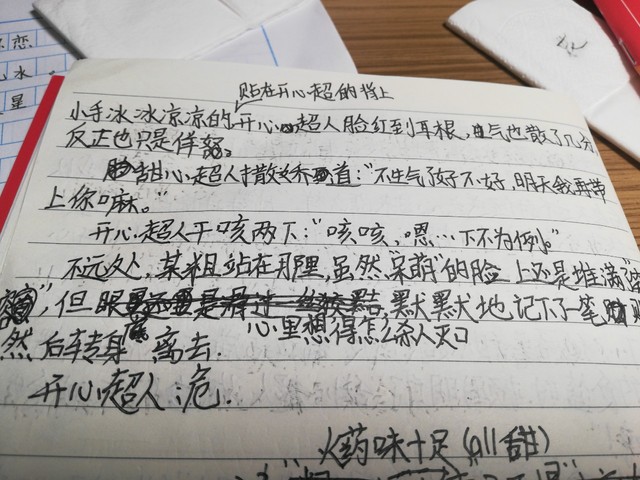 恋
水
星
贴在开心超的背上
小手冰冰凉凉的,开心超人脸红到耳根,气也散了几分,
反正也只是佯怒。
甜心超人撒娇道:“不生气了好不好,明天我再带
上你嘛。”
开心超人干咳两下:“咳咳,嗯…下不为例。”
不远处,某粗站在那里,虽然“呆萌”的脸上还是堆满“
”,但眼默默地记下了一笔
心里想得怎么杀人灭口
然后转身离去.
开心超人:危.
火药味十足(all甜)